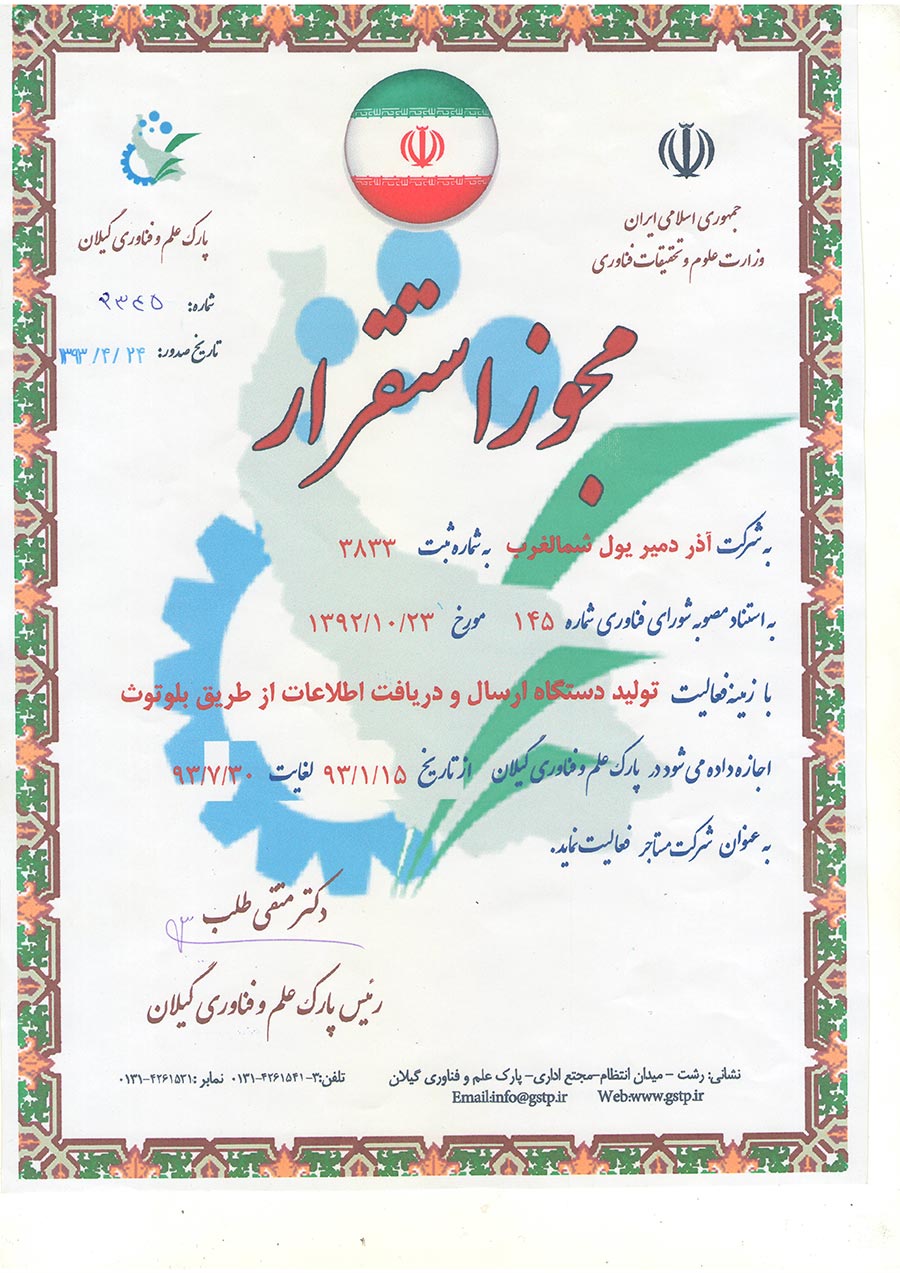 جمهوری اسلامی ایران
وزارت علوم و تحقیقات فناوری
پارک علم و فناوری گیلان
شماره: ۲۳۴۵
تاریخ صدور: ۱۳۹۳/۴/۲۴
مجوز استقرار
به شرکت آذر دمیر یول شمالغرب به شماره ثبت ۳۸۳۳
به استناد مصوبه شورای فناوری شماره ۱۴۵ مورخ ۱۳۹۲/۱۰/۲۳
با زمینه فعالیت تولید دستگاه ارسال و دریافت اطلاعات از طریق بلوتوث
اجازه داده می شود در پارک علم و فناوری گیلان از تاریخ ۹۳/۱/۱۵ لغایت ۹۳/۷/۳۰
به عنوان شرکت مستاجر فعالیت نماید.
دکتر متقی طلب
رئیس پارک علم و فناوری گیلان
نشانی: رشت – میدان انتظام–مجتمع اداری– پارک علم و فناوری گیلان تلفن:۳–۴۲۶۱۵۴۱–۰۱۳۱ نمابر :۴۲۶۱۵۳۱–۰۱۳۱
Web:www.gstp.ir Email:info@gstp.ir